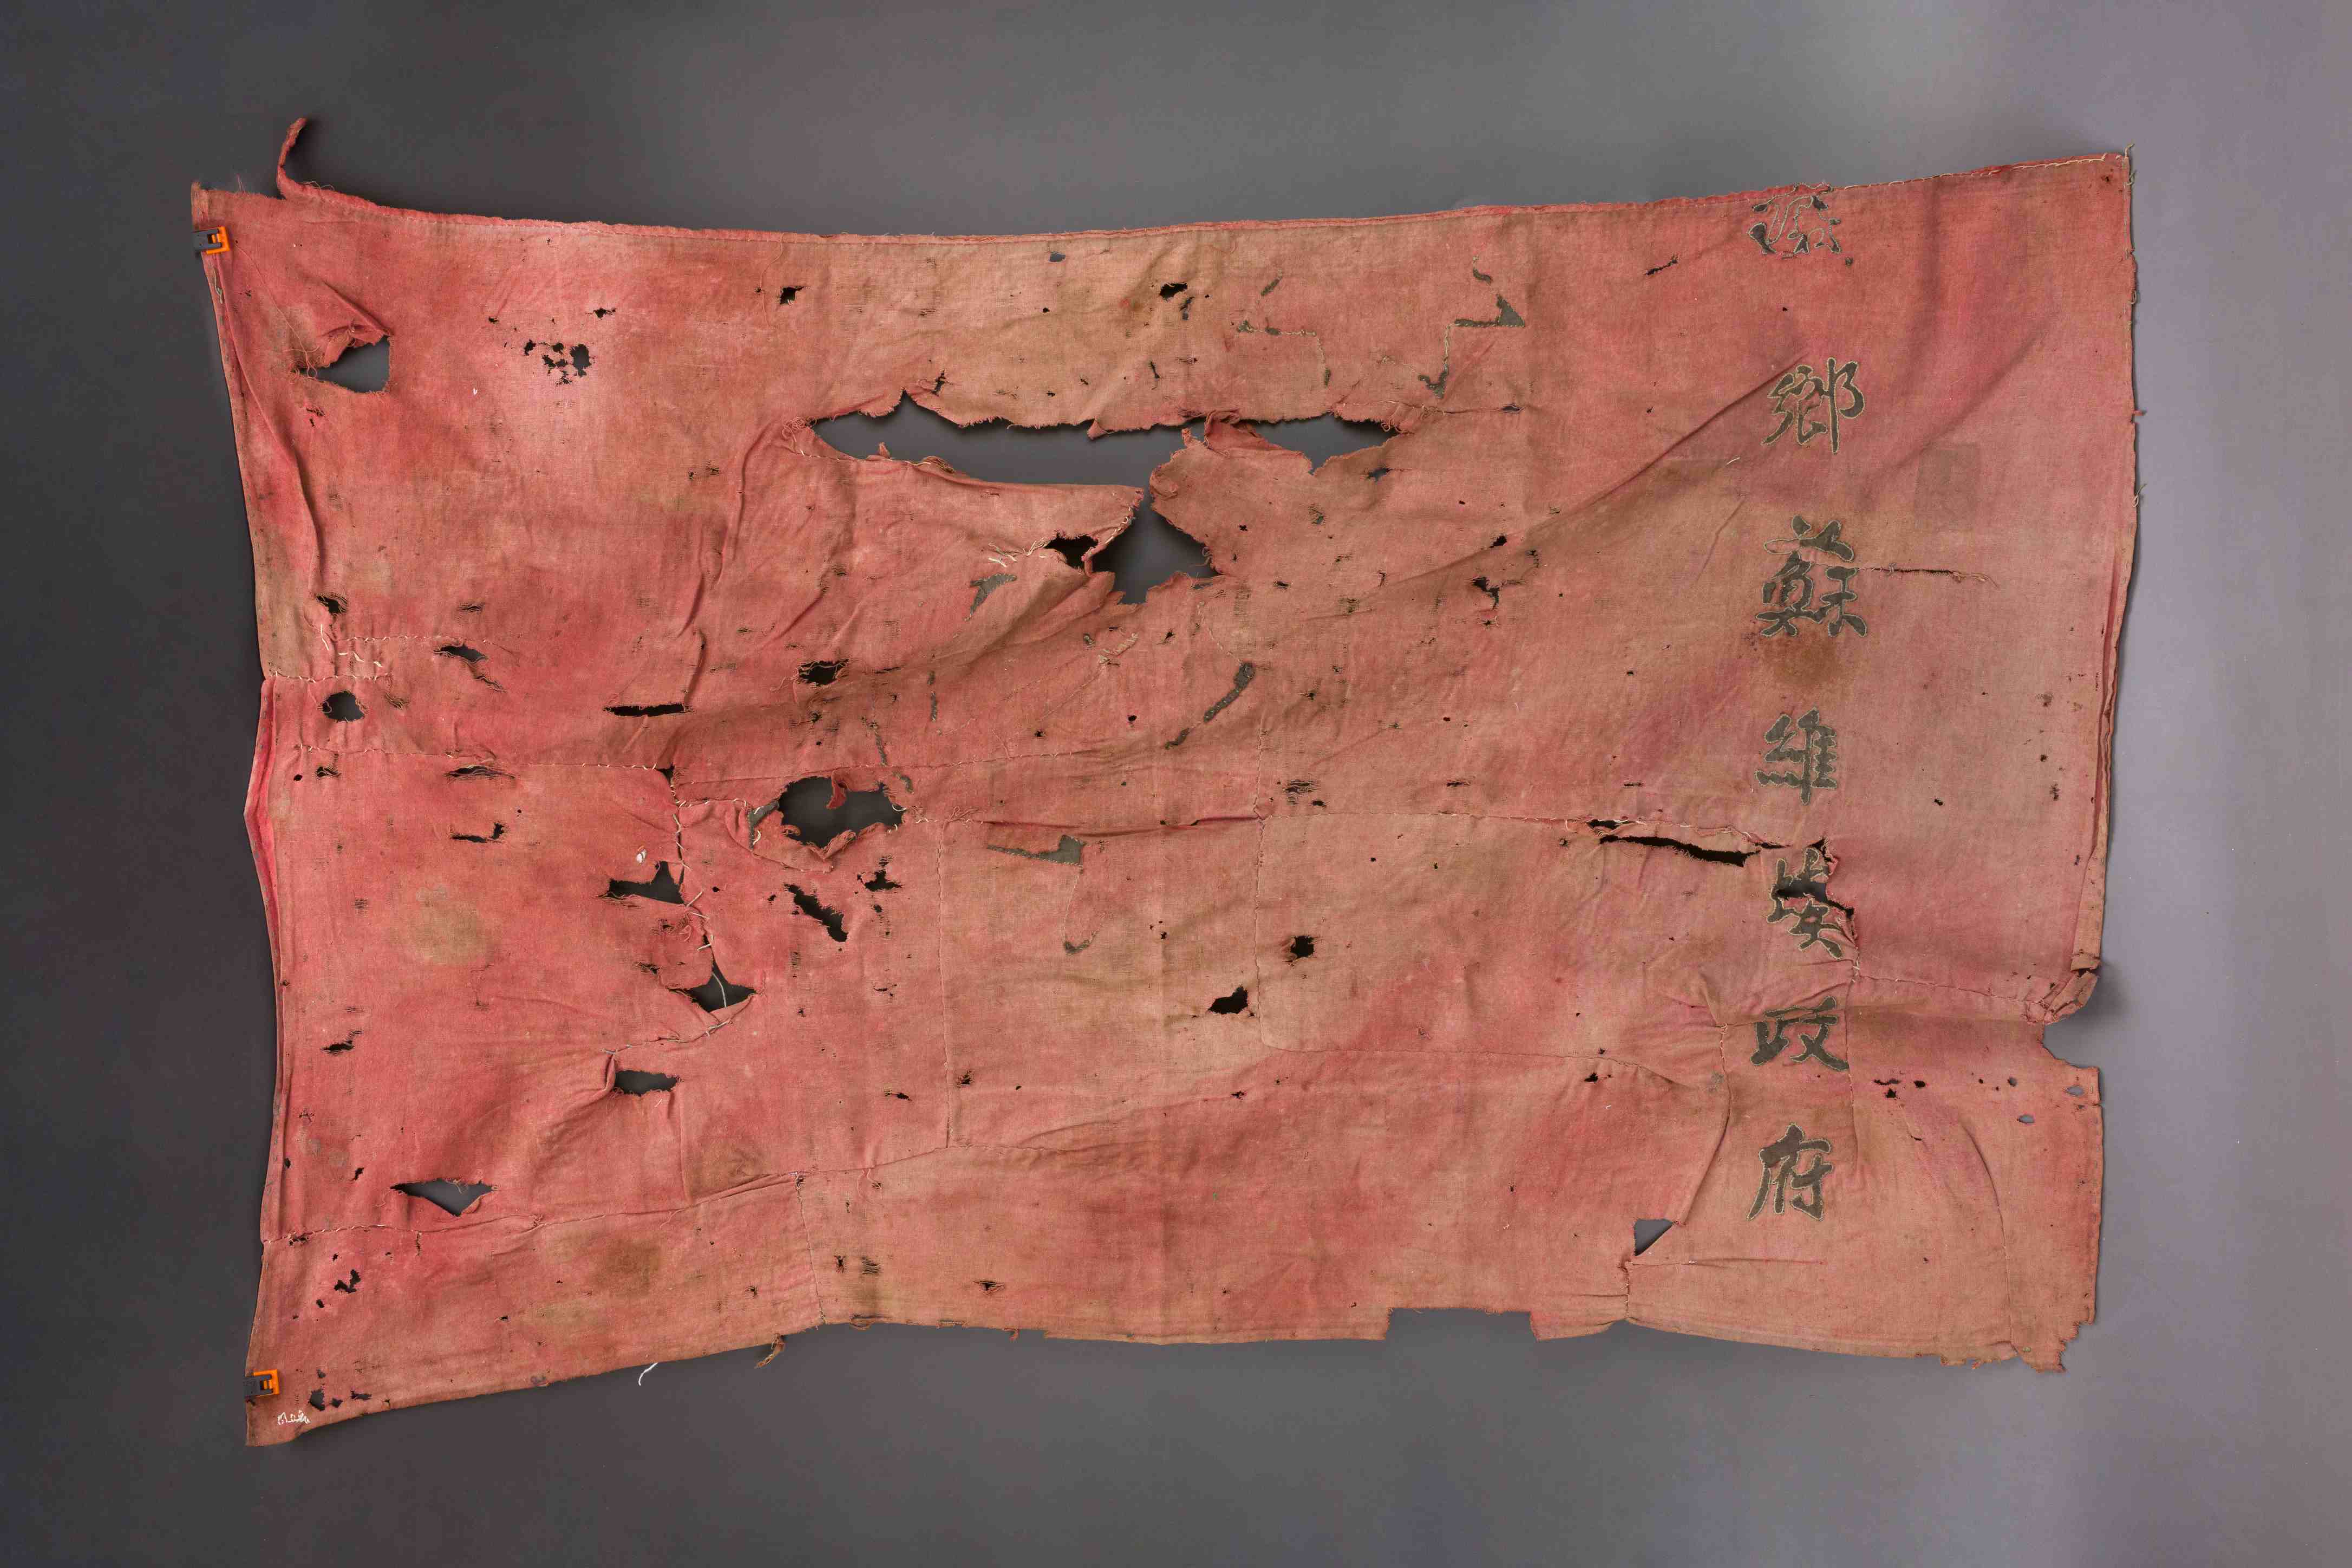 鄉蘇維埃政府